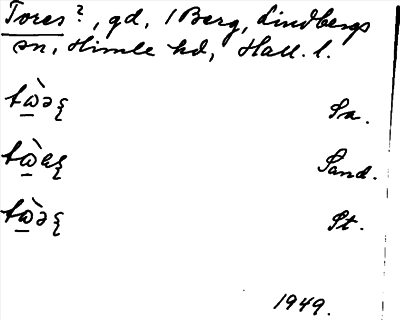 Tores?, gd, 1 Berg, Lindbergs
sn, Himle hd, Hall. l.
tὼəξ Sa.
tὼeξ Sand.
tὼəξ St.
1949.